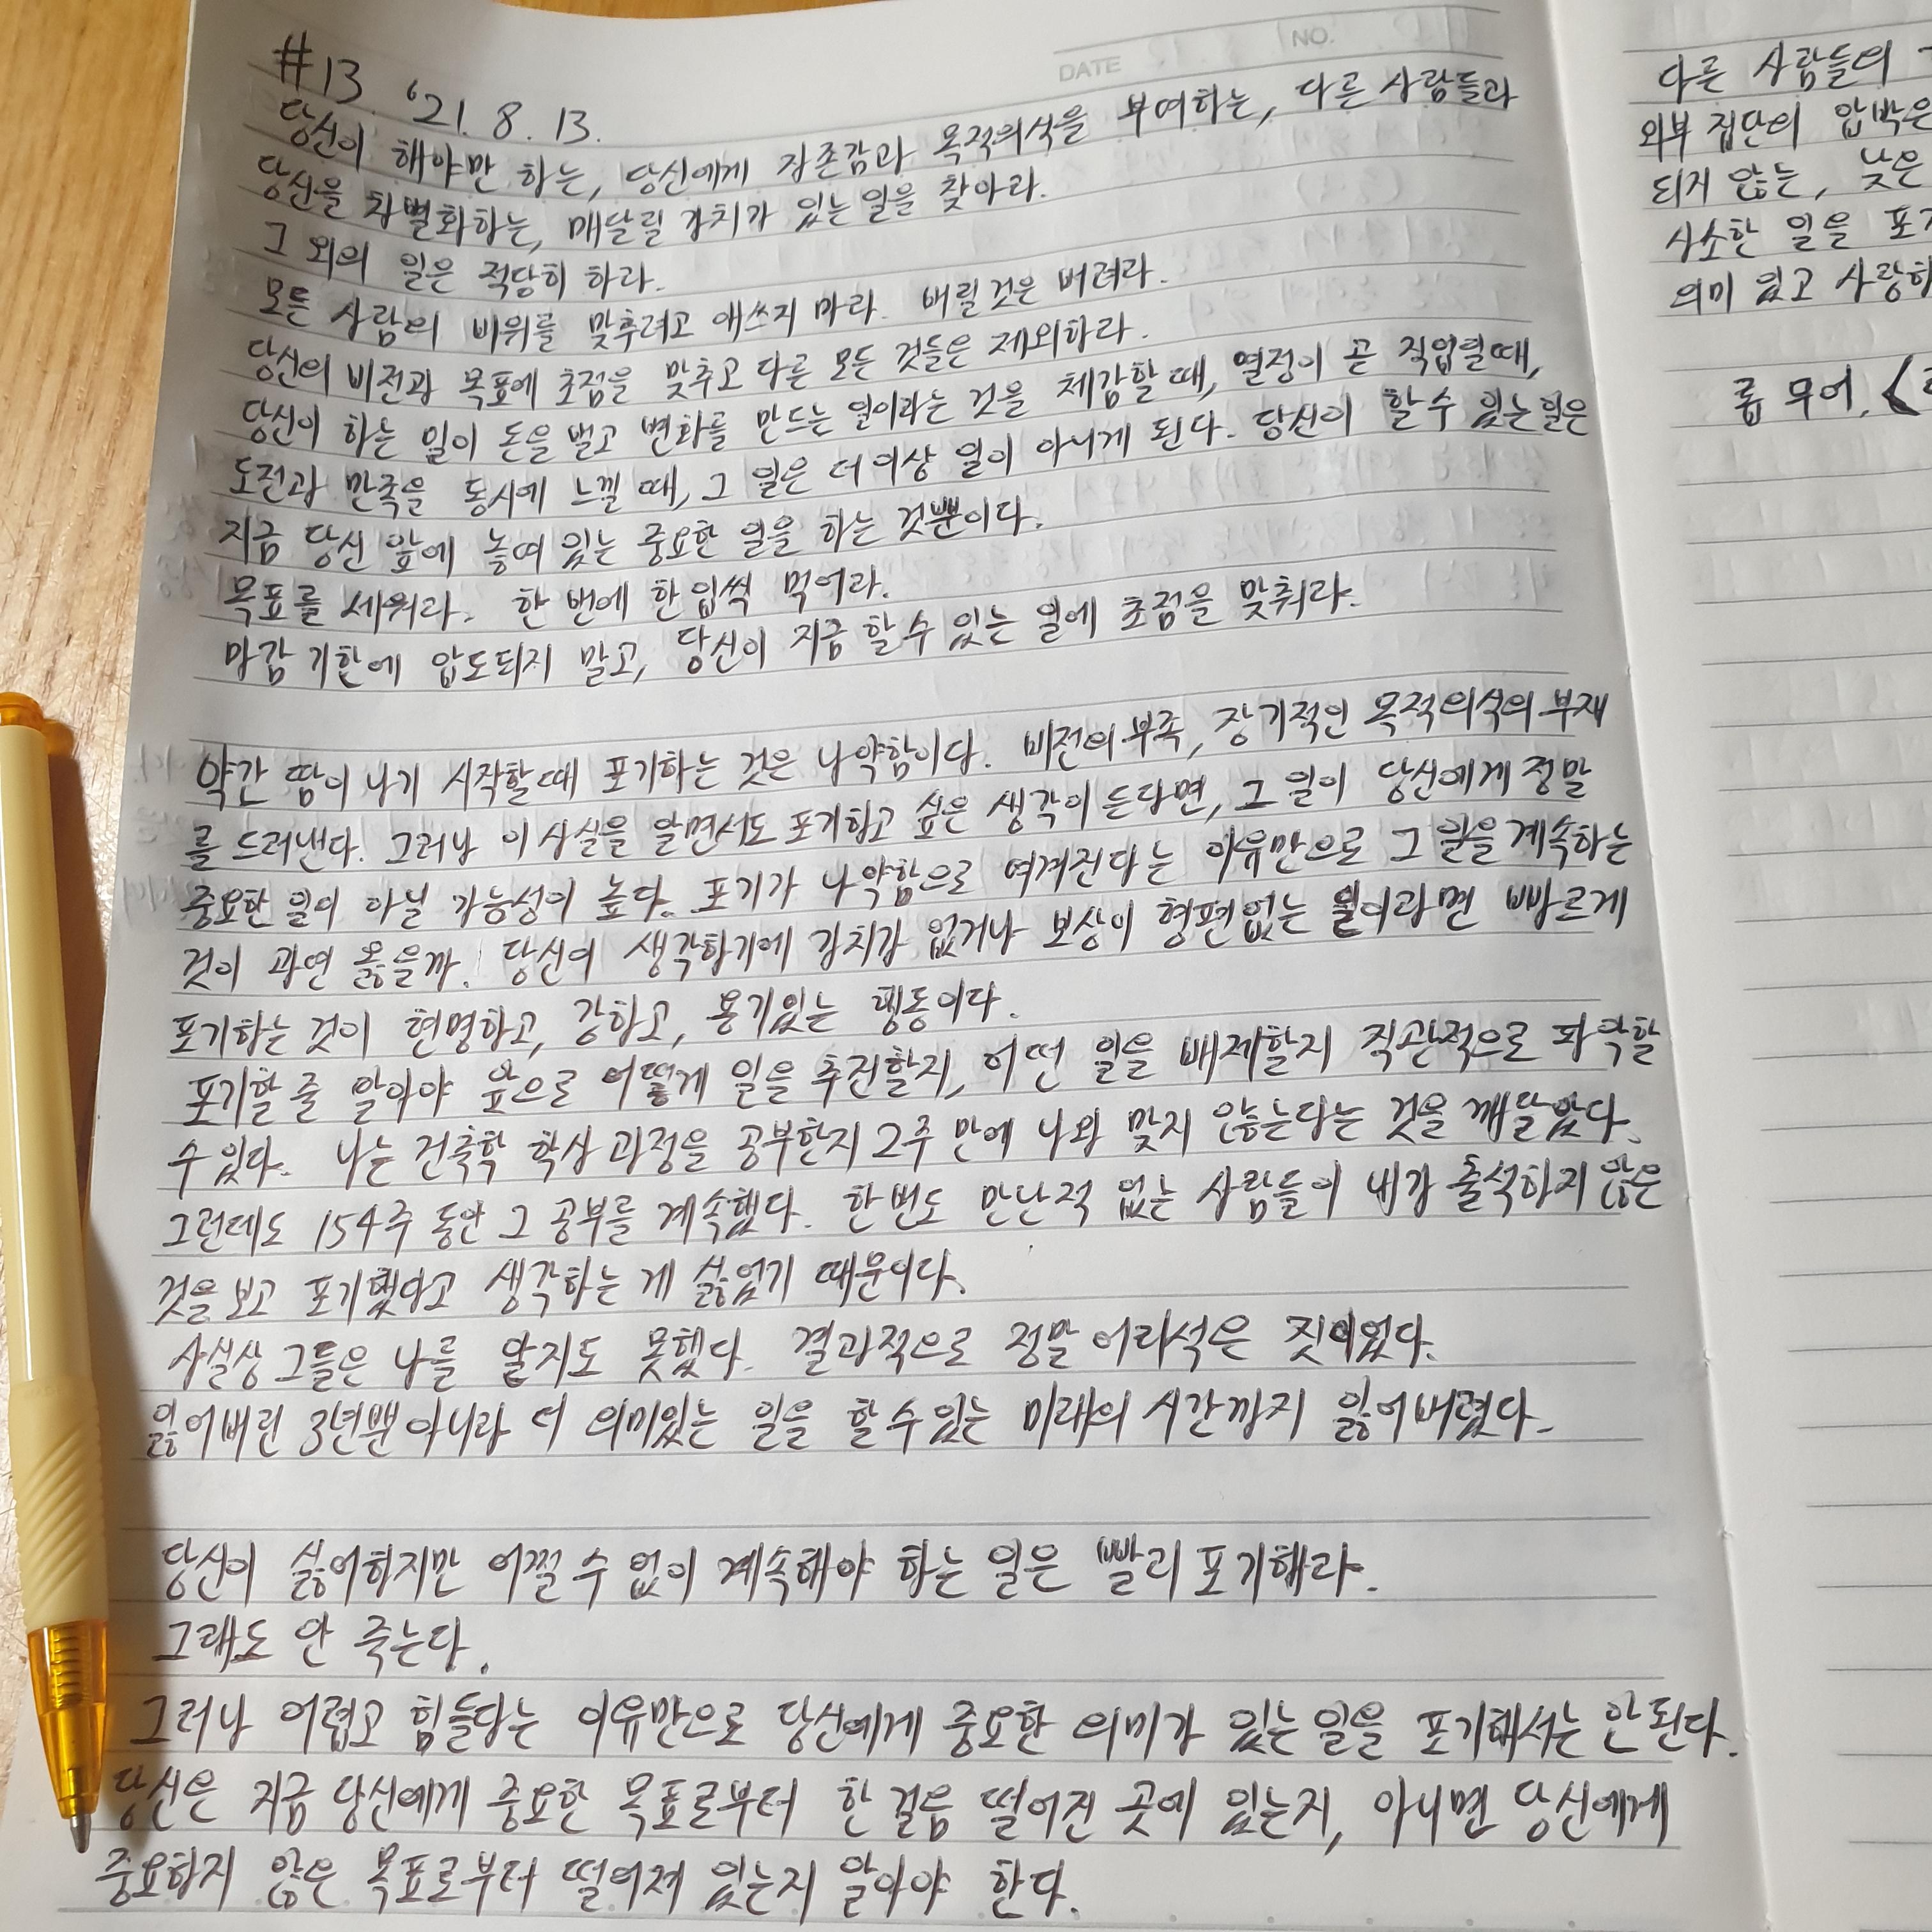 DATE NO.
#13. '21. 8. 13.
당신이 해야만 하는, 당신에게 자존감과 목적의식을 부여하는, 다른 사람들과
당신을 차별화하는, 매달릴 가치가 있는 일을 찾아라.
그 외의 일은 적당히 하라.
모든 사람의 비위를 맞추려고 애쓰지 마라. 버릴것은 버려라.
당신의 비전과 목표에 초점을 맞추고 다른 모든 것들은 제외하라.
당신이 하는 일이 돈을 벌고 변화를 만드는 일이라는 것을 체감할 때, 열정이 곧 직업일때,
도전과 만족을 동시에 느낄 때, 그 일은 더 이상 일이 아니게 된다. 당신이 할 수 있는 일은
지금 당신 앞에 놓여 있는 중요한 일을 하는 것뿐이다.
목표를 세워라. 한 번에 한 입씩 먹어라.
마감 기한에 압도되지 말고, 당신이 지금 할 수 있는 일에 초점을 맞춰라.
약간 땀이 나기 시작할 때 포기하는 것은 나약함이다. 비전의 부족, 장기적인 목적의식의 부재
를 드러낸다. 그러나 이 사실을 알면서도 포기하고 싶은 생각이 든다면, 그 일이 당신에게 정말
중요한 일이 아닐 가능성이 높다. 포기가 나약함으로 여겨진다는 이유만으로 그 일을 계속하는
것이 과연 옳을까. 당신이 생각하기에 가치가 없거나 보상이 형편없는 일이라면 빠르게
포기하는 것이 현명하고, 강하고, 용기있는 행동이다.
포기할 줄 알아야 앞으로 어떻게 일을 추진할지, 어떤 일을 배제할지 직관적으로 파악할
수 있다. 나는 건축학 학사 과정을 공부한지 2주 만에 나와 맞지 않는다는 것을 깨달았다.
그런데도 154주 동안 그 공부를 계속했다. 한번도 만난적 없는 사람들이 내가 출석하지 않은
것을 보고 포기했다고 생각하는 게 싫었기 때문이다.
사실상 그들은 나를 알지도 못했다. 결과적으로 정말 어리석은 짓이었다.
잃어버린 3년뿐 아니라 더 의미있는 일을 할 수 있는 미래의 시간까지 잃어버렸다.
당신이 싫어하지만 어쩔 수 없이 계속해야 하는 일은 빨리 포기해라.
그래도 안 죽는다.
그러나 어렵고 힘들다는 이유만으로 당신에게 중요한 의미가 있는 일을 포기해서는 안된다.
당신은 지금 당신에게 중요한 목표로부터 한 걸음 떨어진 곳에 있는지, 아니면 당신에게
중요하지 않은 목표로부터 떨어져 있는지 알아야 한다.
다른 사람들의
외부 집단의 압박은
되지 않는, 낮은
사소한 일을
의미 있고
롭 무어,